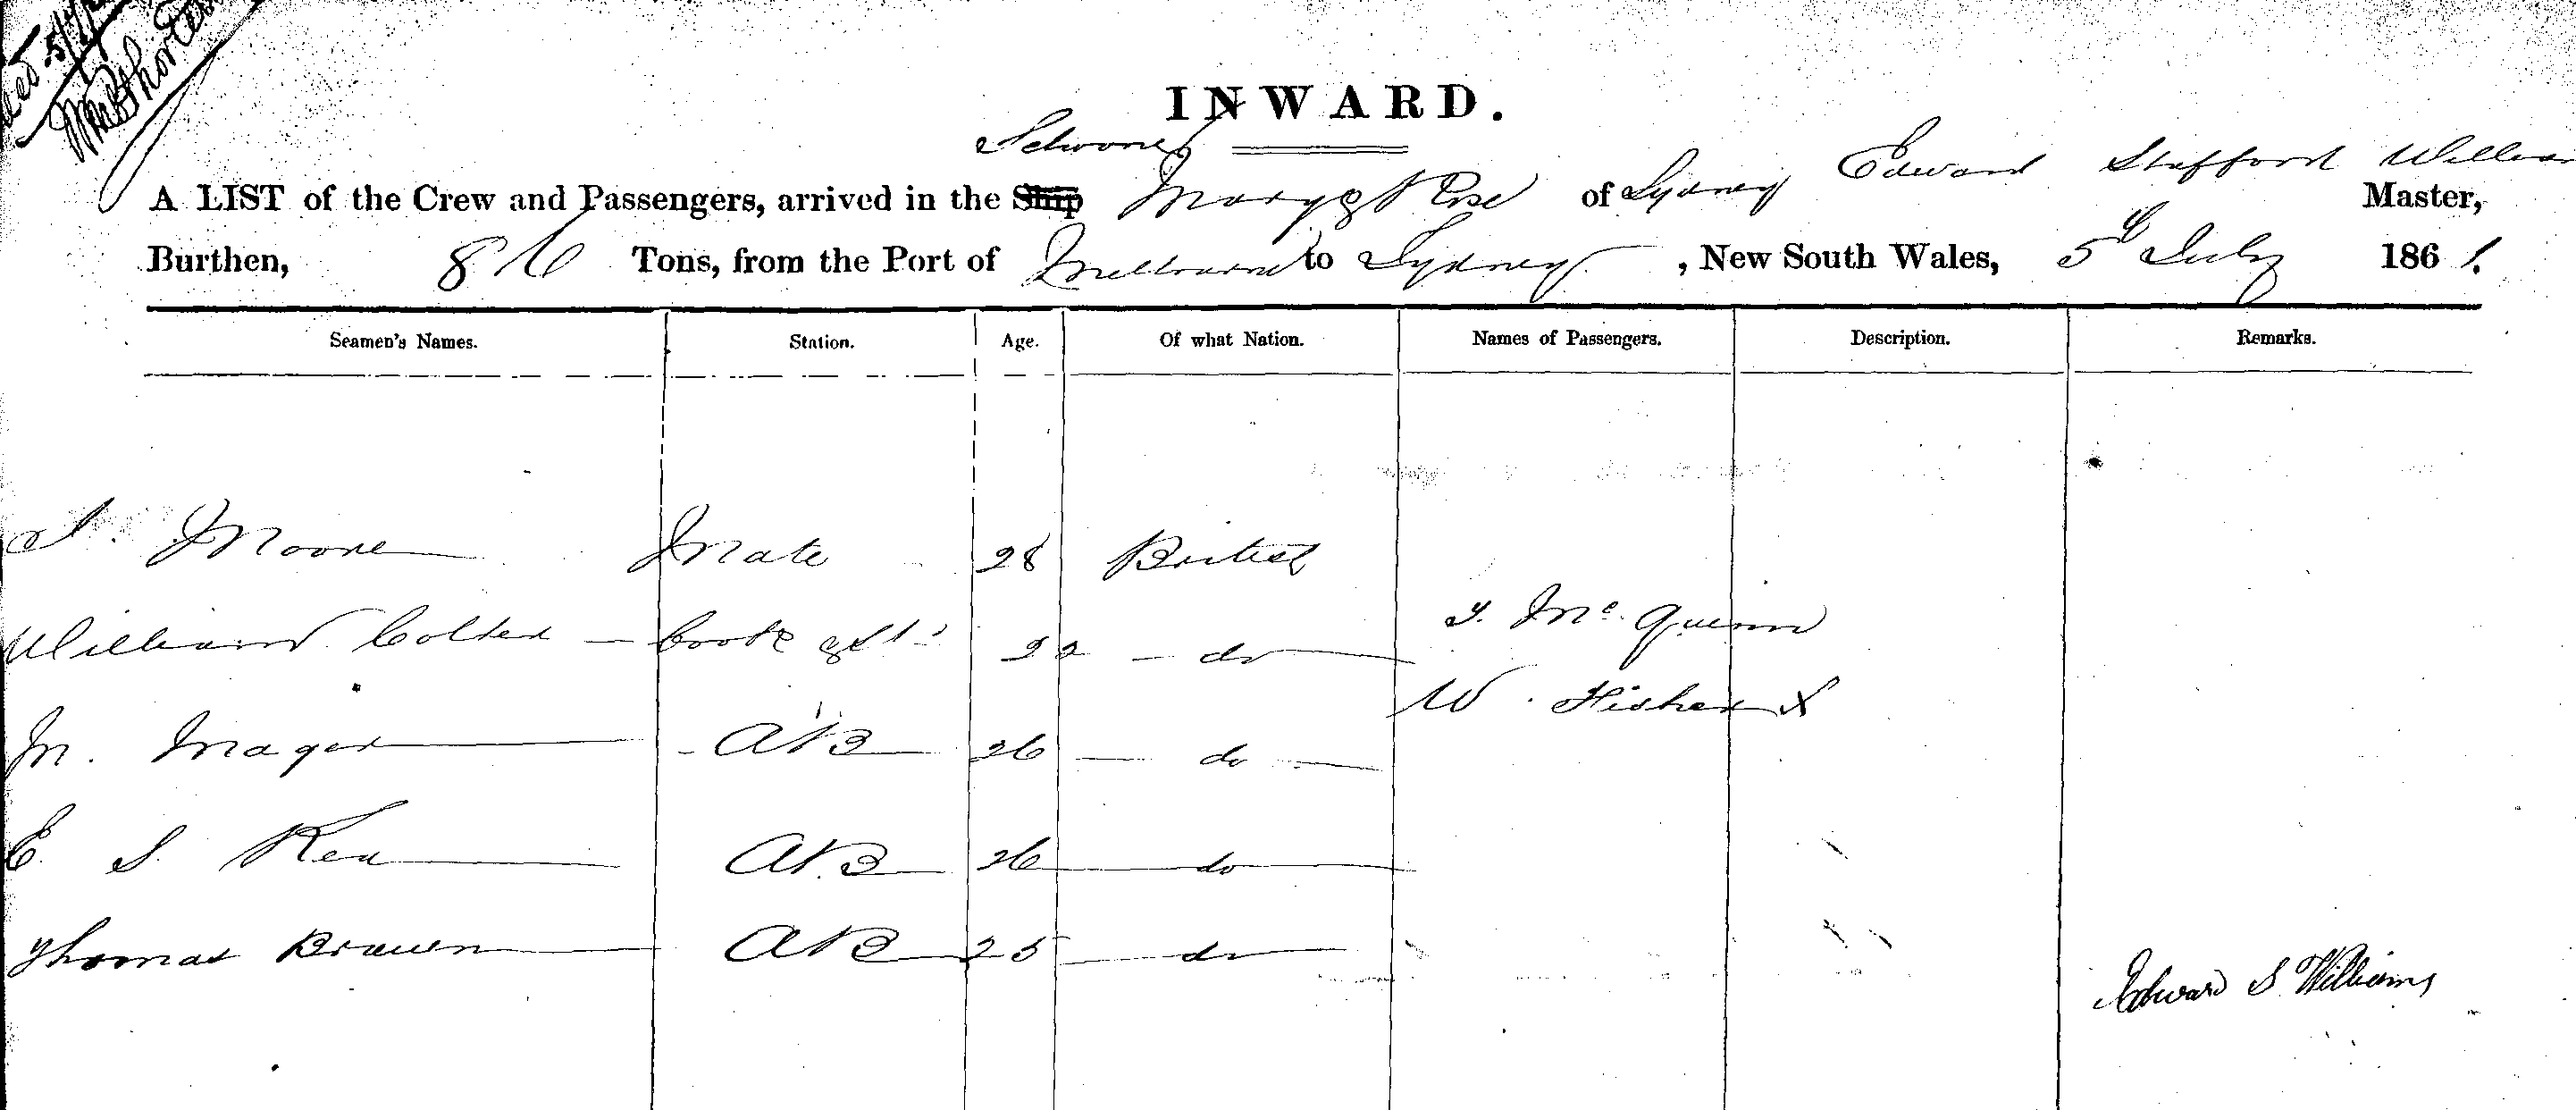 INWARD.
Schooner
A LIST of the Crew and Passengers, arrived in the Ship Mary & Rose of Sydney Edward Stafford William Master,
Burthen, 86 Tons, from the Port of Melbourne to Sydney, New South Wales, 5th July 1861.
Seamen's Names. Station. Age. Of what Nation. Names of Passengers. Description. Remarks.
S. Moore Mate 28 British
T. Mc. Quinn
William Colter Cook & St 22 do
W. Fisher X
M. Mager AB 26 do
E. S. Rea AB 26 do
Thomas Brawn AB 25 do
Edward S Williams